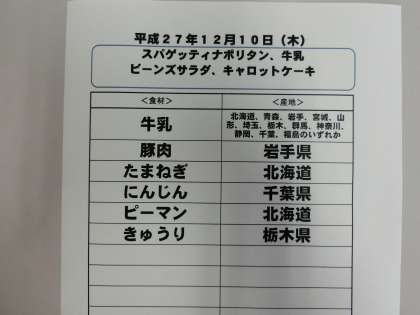 平成２７年１２月１０日（木）
スパゲッティナポリタン、牛乳
ビーンズサラダ、キャロットケーキ
＜食材＞ ＜産地＞
牛乳 北海道、青森、岩手、宮城、山
形、埼玉、栃木、群馬、神奈川、
静岡、千葉、福島のいずれか
豚肉 岩手県
たまねぎ 北海道
にんじん 千葉県
ピーマン 北海道
きゅうり 栃木県